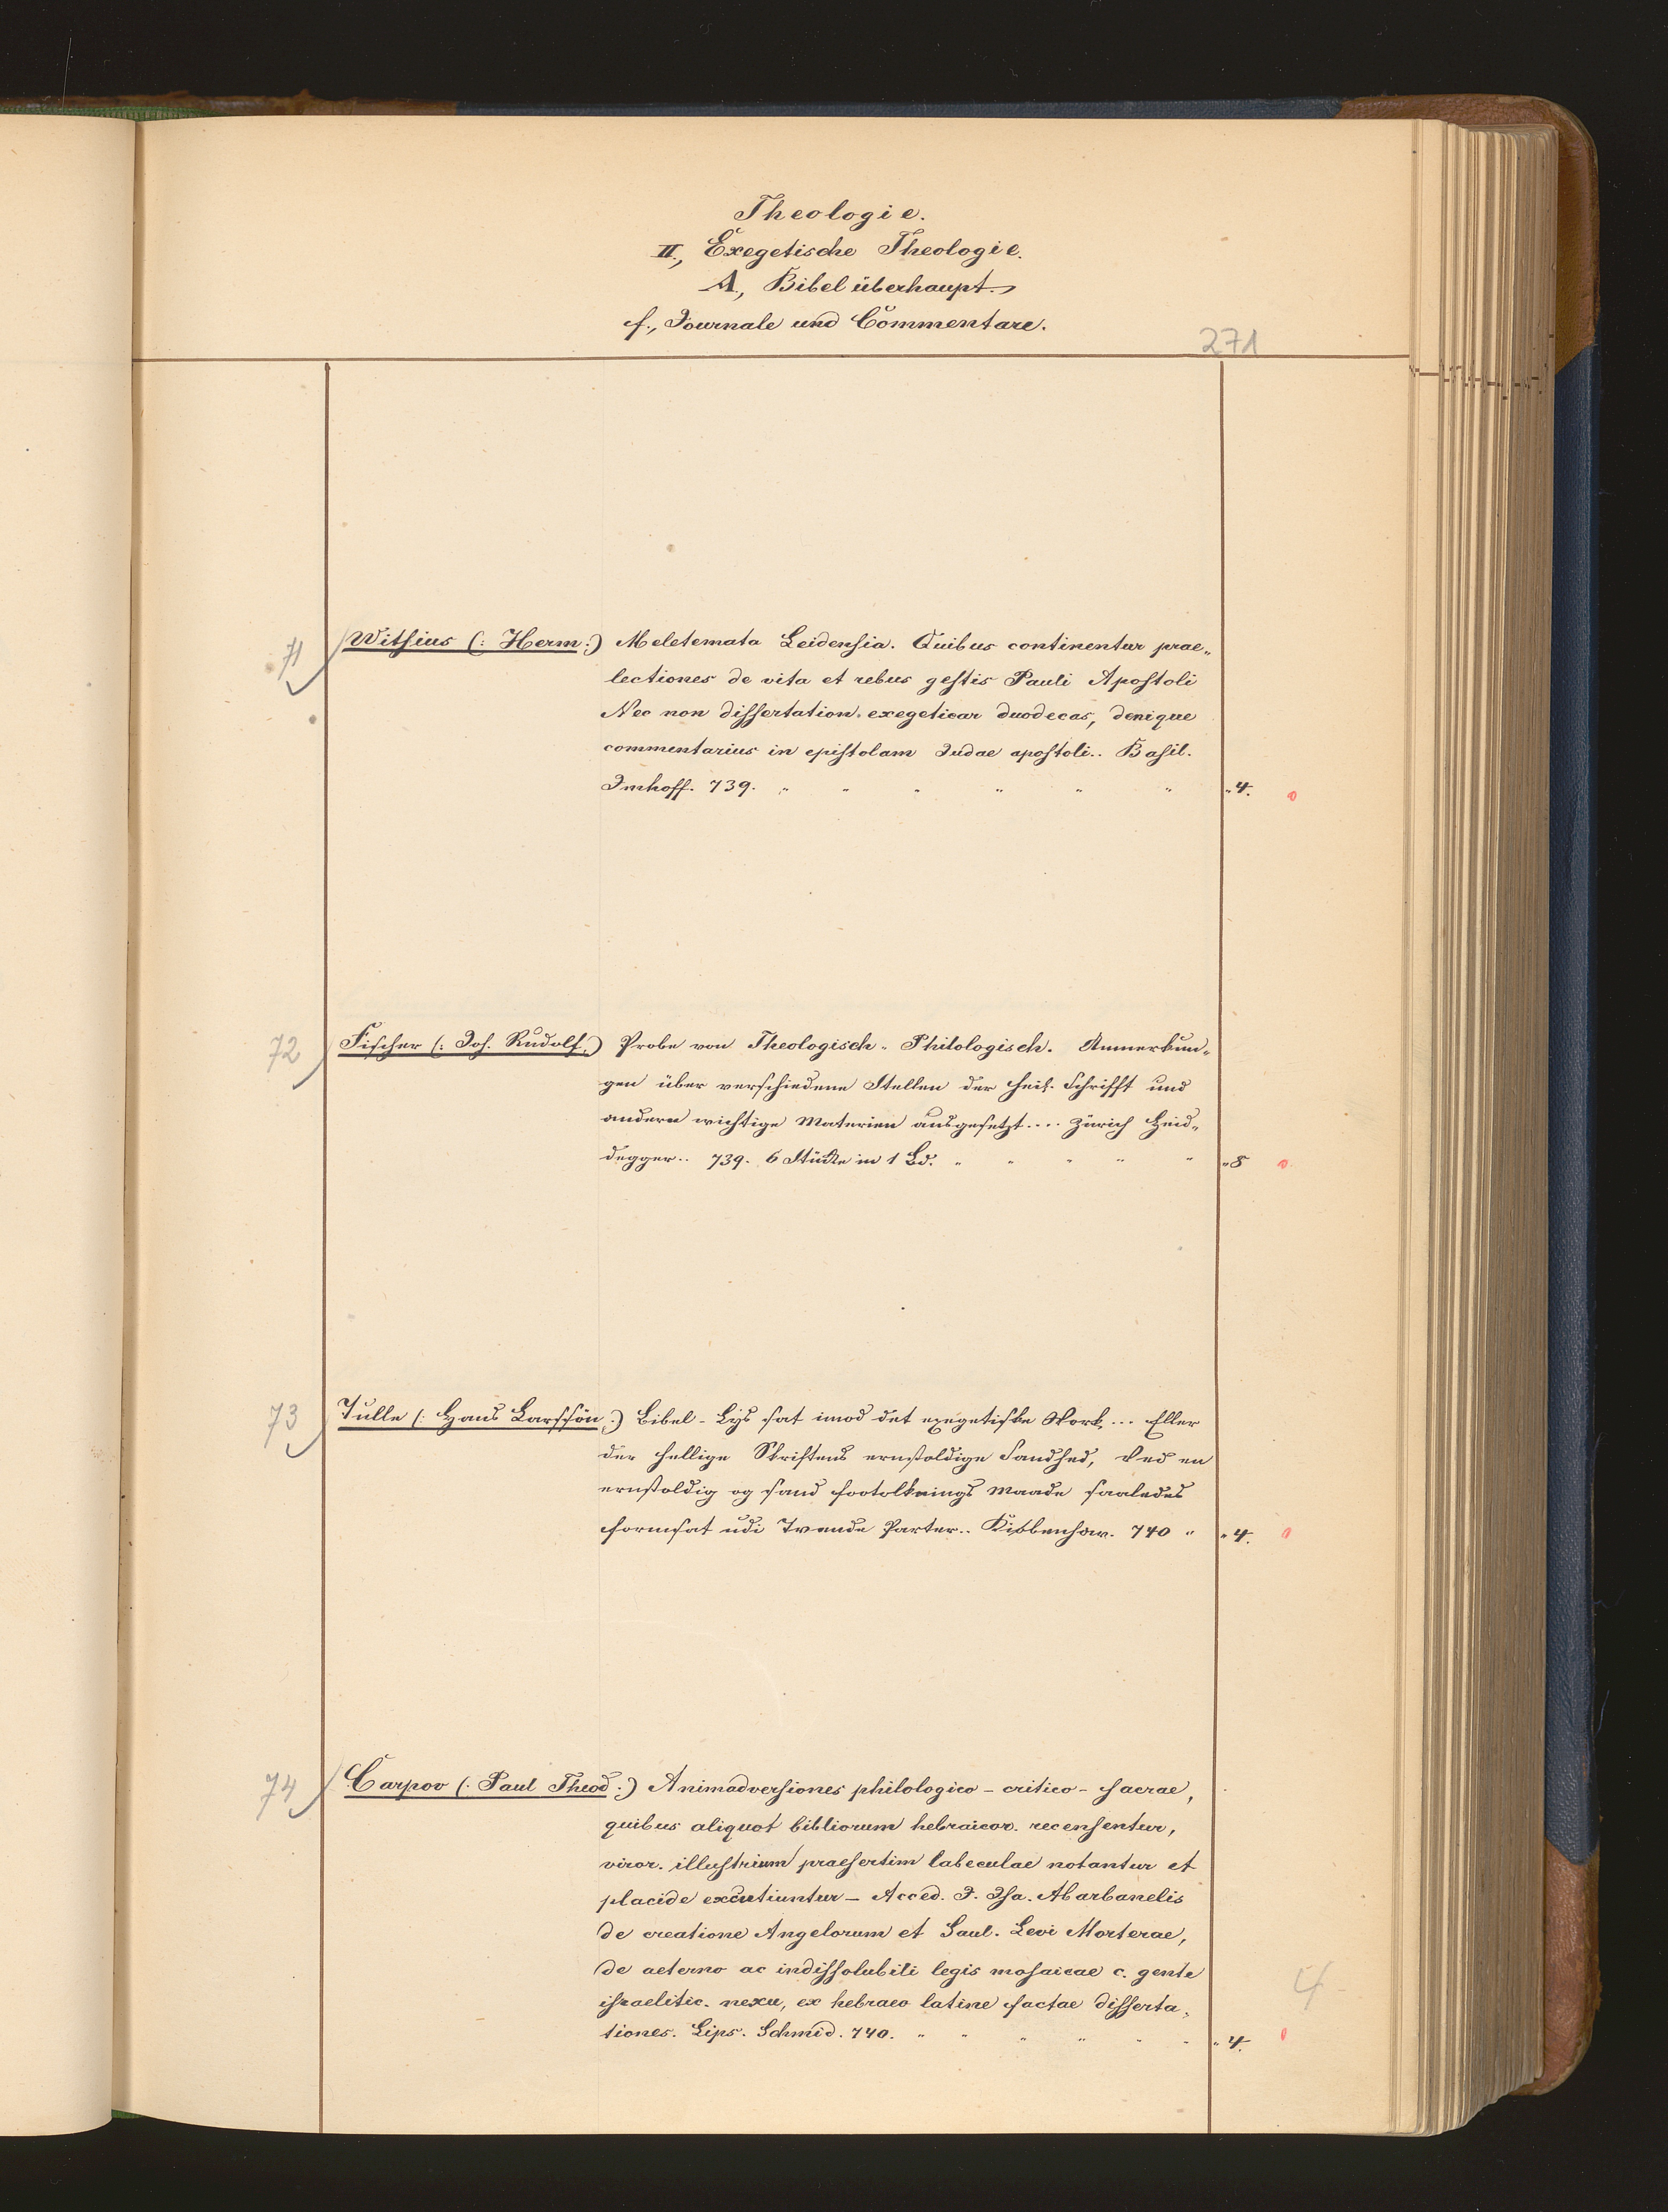 Theologie.
II., Exegetische Theologie.
A., Bibel überhaupt.
f., Journale und Commentare.
271
71
Witsius (: Herm :) Meletemata Leidensia. Quibus continentur prae„
lectiones de vita et rebus gestis Pauli Apostoli
Nec non dissertation. exegeticar duodecas, denique
commentarius in epistolam Judae apostoli.. Basil.
Imhoff. 739. " " " " " " „4.
72
Fischer (: Joh. Rudolf :) Probe von Theologisch„ Philologisch. Anmerkun„
gen über verschiedene Stellen der heil. Schrifft und
andere wichtige Materien ausgesetzt.... Zürich Heid„
degger.. 739. 6 Stücke in 1 Bd. " " " " " „8
73
Tulle (: Hans Larssön :) Bibel-Lys sat imod det exegetiske Mork... Eller
der hellige Skriftens eenfoldige Sandhed, ved en
eenfoldig og sand footolknings Maade saaledes
formsat udi Tvende Parter.. Kiöbenhav. 740 " „4.
74
Carpov (: Paul Theod :) Animadversiones philologico-critico-sacrae,
quibus aliquot bibliorum hebraicor. recensentur,
viror. illustrium praesertim labeculae notantur et
placide excutiuntur – Acced. J. Isa. Abarbanelis
de creatione Angelorum et Saul. Levi Morterae,
de aeterno ac indissolubili legis mosaicae c. gente
israelitic. nexu, ex hebraeo latine factae disserta„
tiones. Lips. Schmid. 740. " " " " " " „4.
4